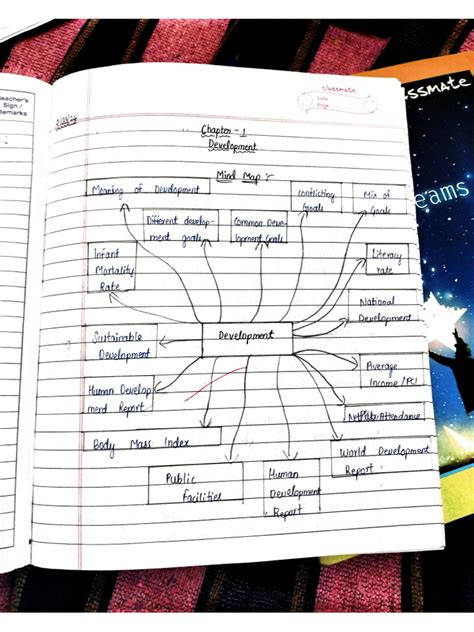 Teacher's
Sign /
Remarks
classmate
Date
Page
Chapter - 1
Development
Mind Map :-
Meaning of Development
Conflicting
Goals
Mix of
Goals
Different develop-
ment goals
Common Deve-
lopment Goals
Infant
Mortality
Rate
Literacy
rate
National
Development
Sustainable
Development
Development
Average
Income / PCI
Human Develop
ment Report
Attendance
Body Mass Index
World Development
Report
Public
Facilities
Human
Development
Report
assmate
eams